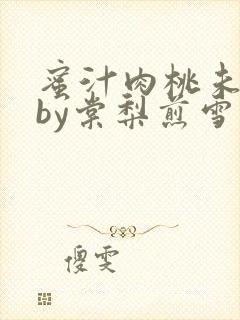 蜜汁肉桃未
by棠梨煎雪
傻雯